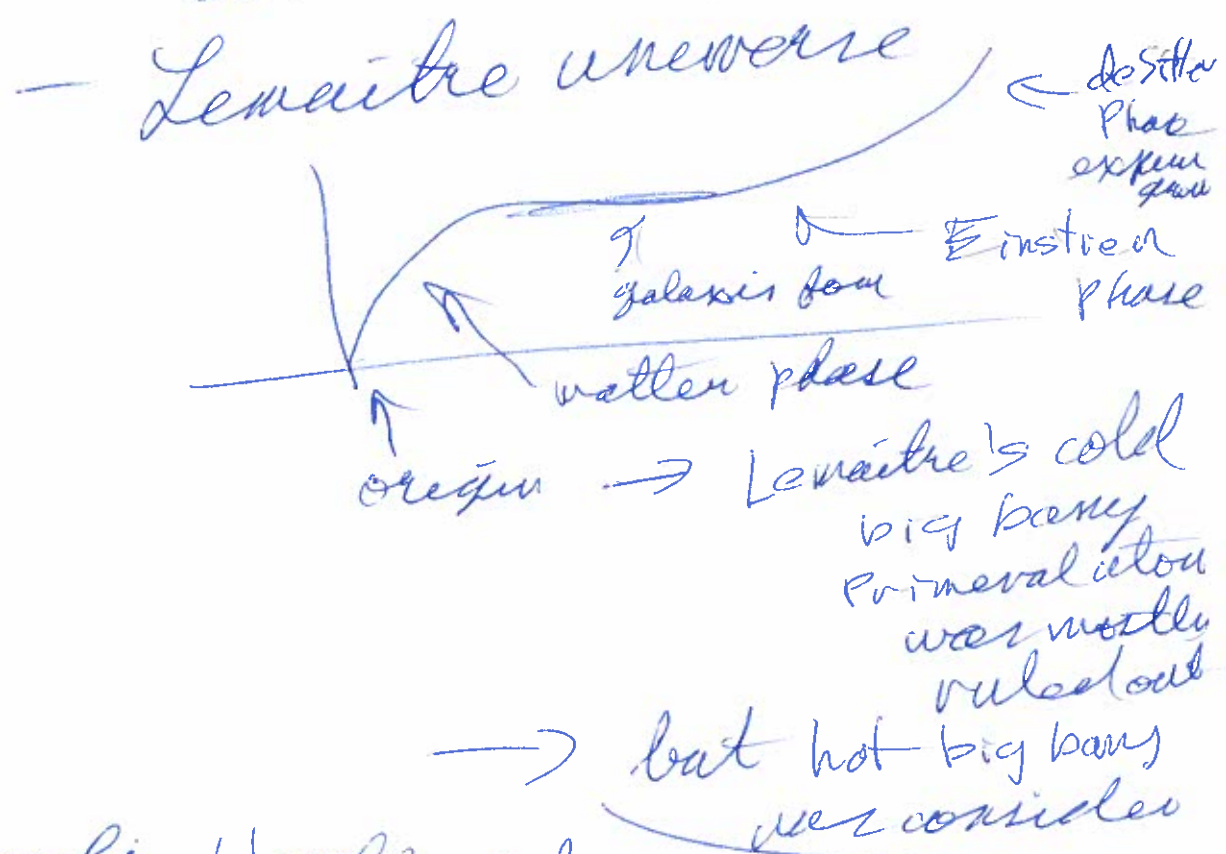 - Lemaitre universe
← de Sitter
Phase
expon
galaxies form
← Einstien
Phase
matter phase
origin → Lemaitre's cold
big bang
Primeval atom
was mostly
ruled out
→ but hot big bang
was consider